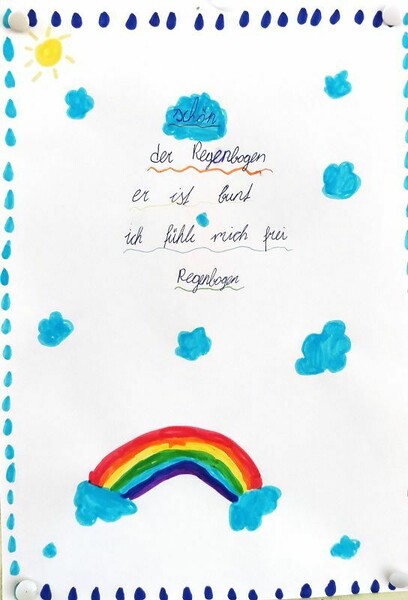 schön
der Regenbogen
er ist bunt
ich fühle mich frei
Regenbogen